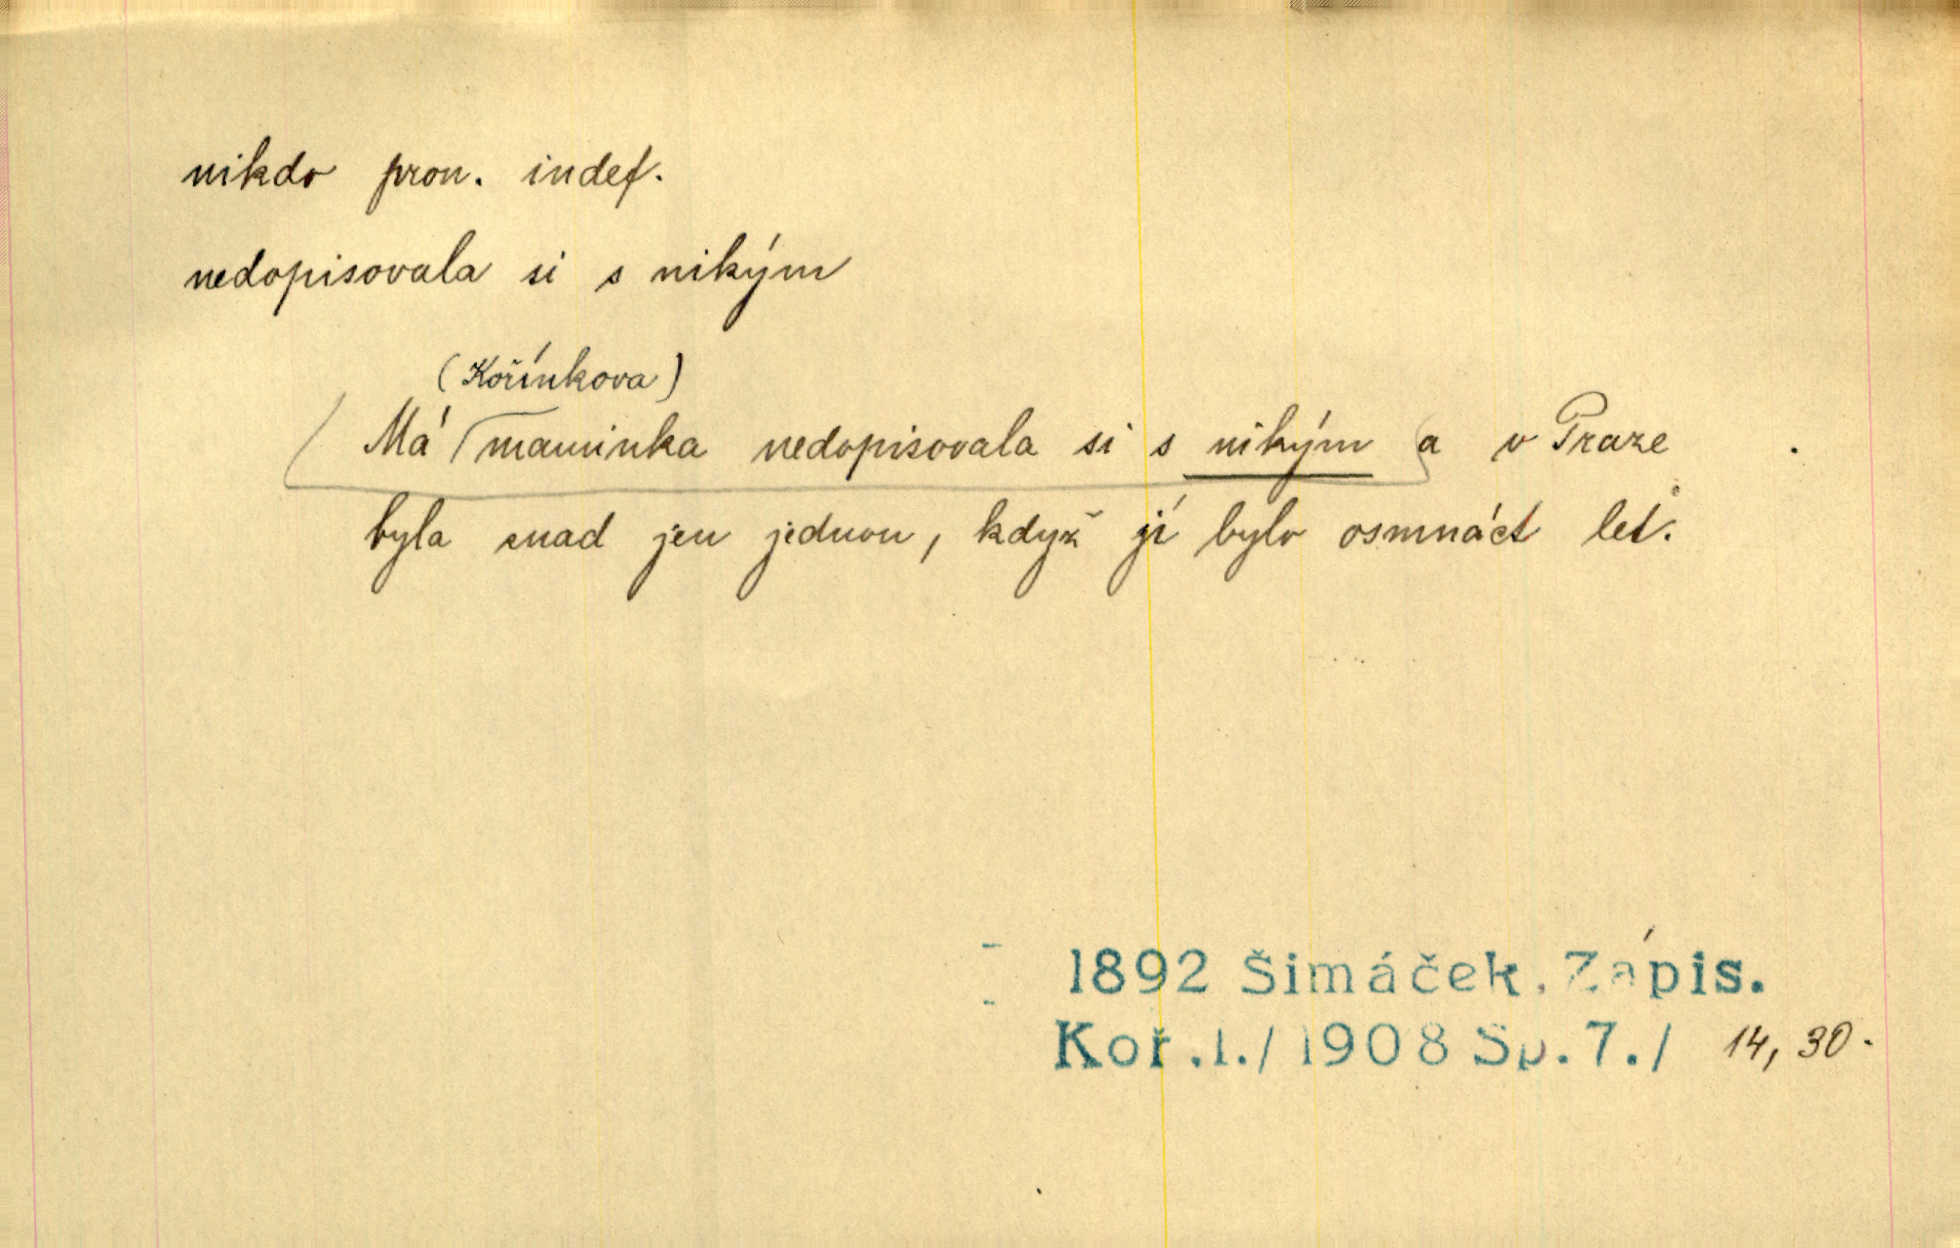 nikdo pron. indef.
nedopisovala si s nikým
(Kořínkova)
Má maminka nedopisovala si s nikým a v Praze
byla snad jen jednou, když jí bylo osmnáct let.
1892 Šimáček, Zápis.
Koř.I./1908 Sp.7./ 14, 30.